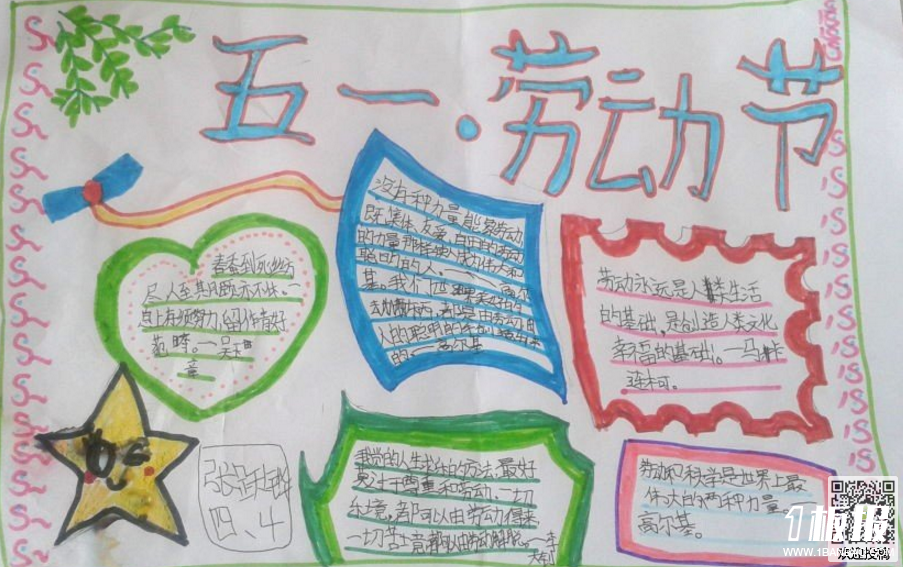 五一·劳动节
没有一种力量能象劳动,
既集体、友爱、自由的劳动
的力量那样使人成为伟大和
聪明的人。——高尔
基。我们
人的聪明的
的。——高尔基
春蚕到死丝方
尽,人至期颐亦不休。一
息上有须努力,留作青年好
范畴。—吴玉
章
劳动永远是人类生活
的基础,是创造人类文化
幸福的基础。—马卡
连柯。
我觉的人生求乐的方法,最好
莫过于尊重和劳动。一切
乐境,都可以由劳动得来,
一切苦境,都可以由劳动解脱。—李
大钊
劳动和科学是世界上最
伟大的两种力量
高尔基。
四、4
1板报
WWW.1BANBAO.COM